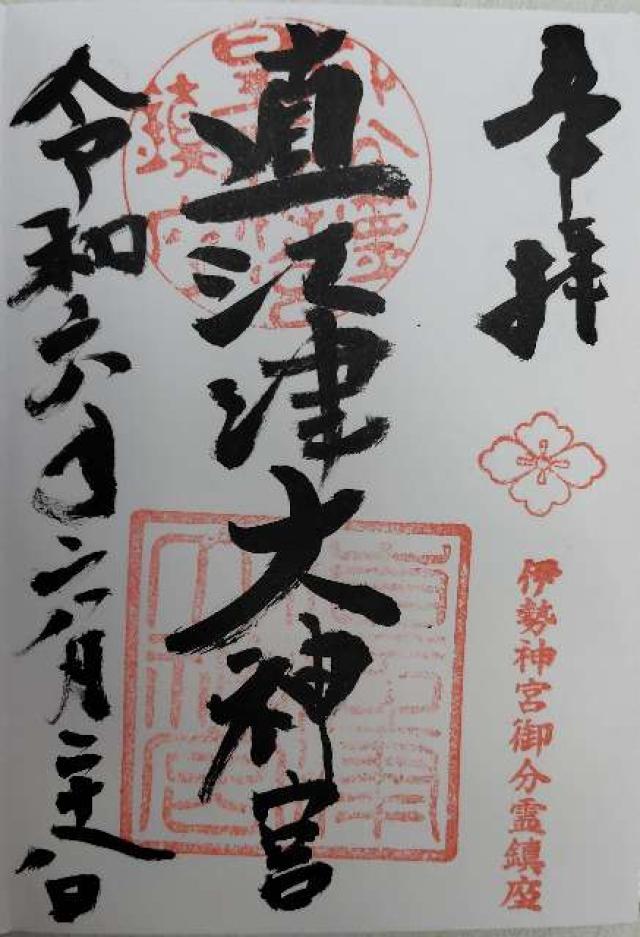 奉拝
伊勢神宮御分霊鎮座
直江津大神宮
令和六年六月二十八日